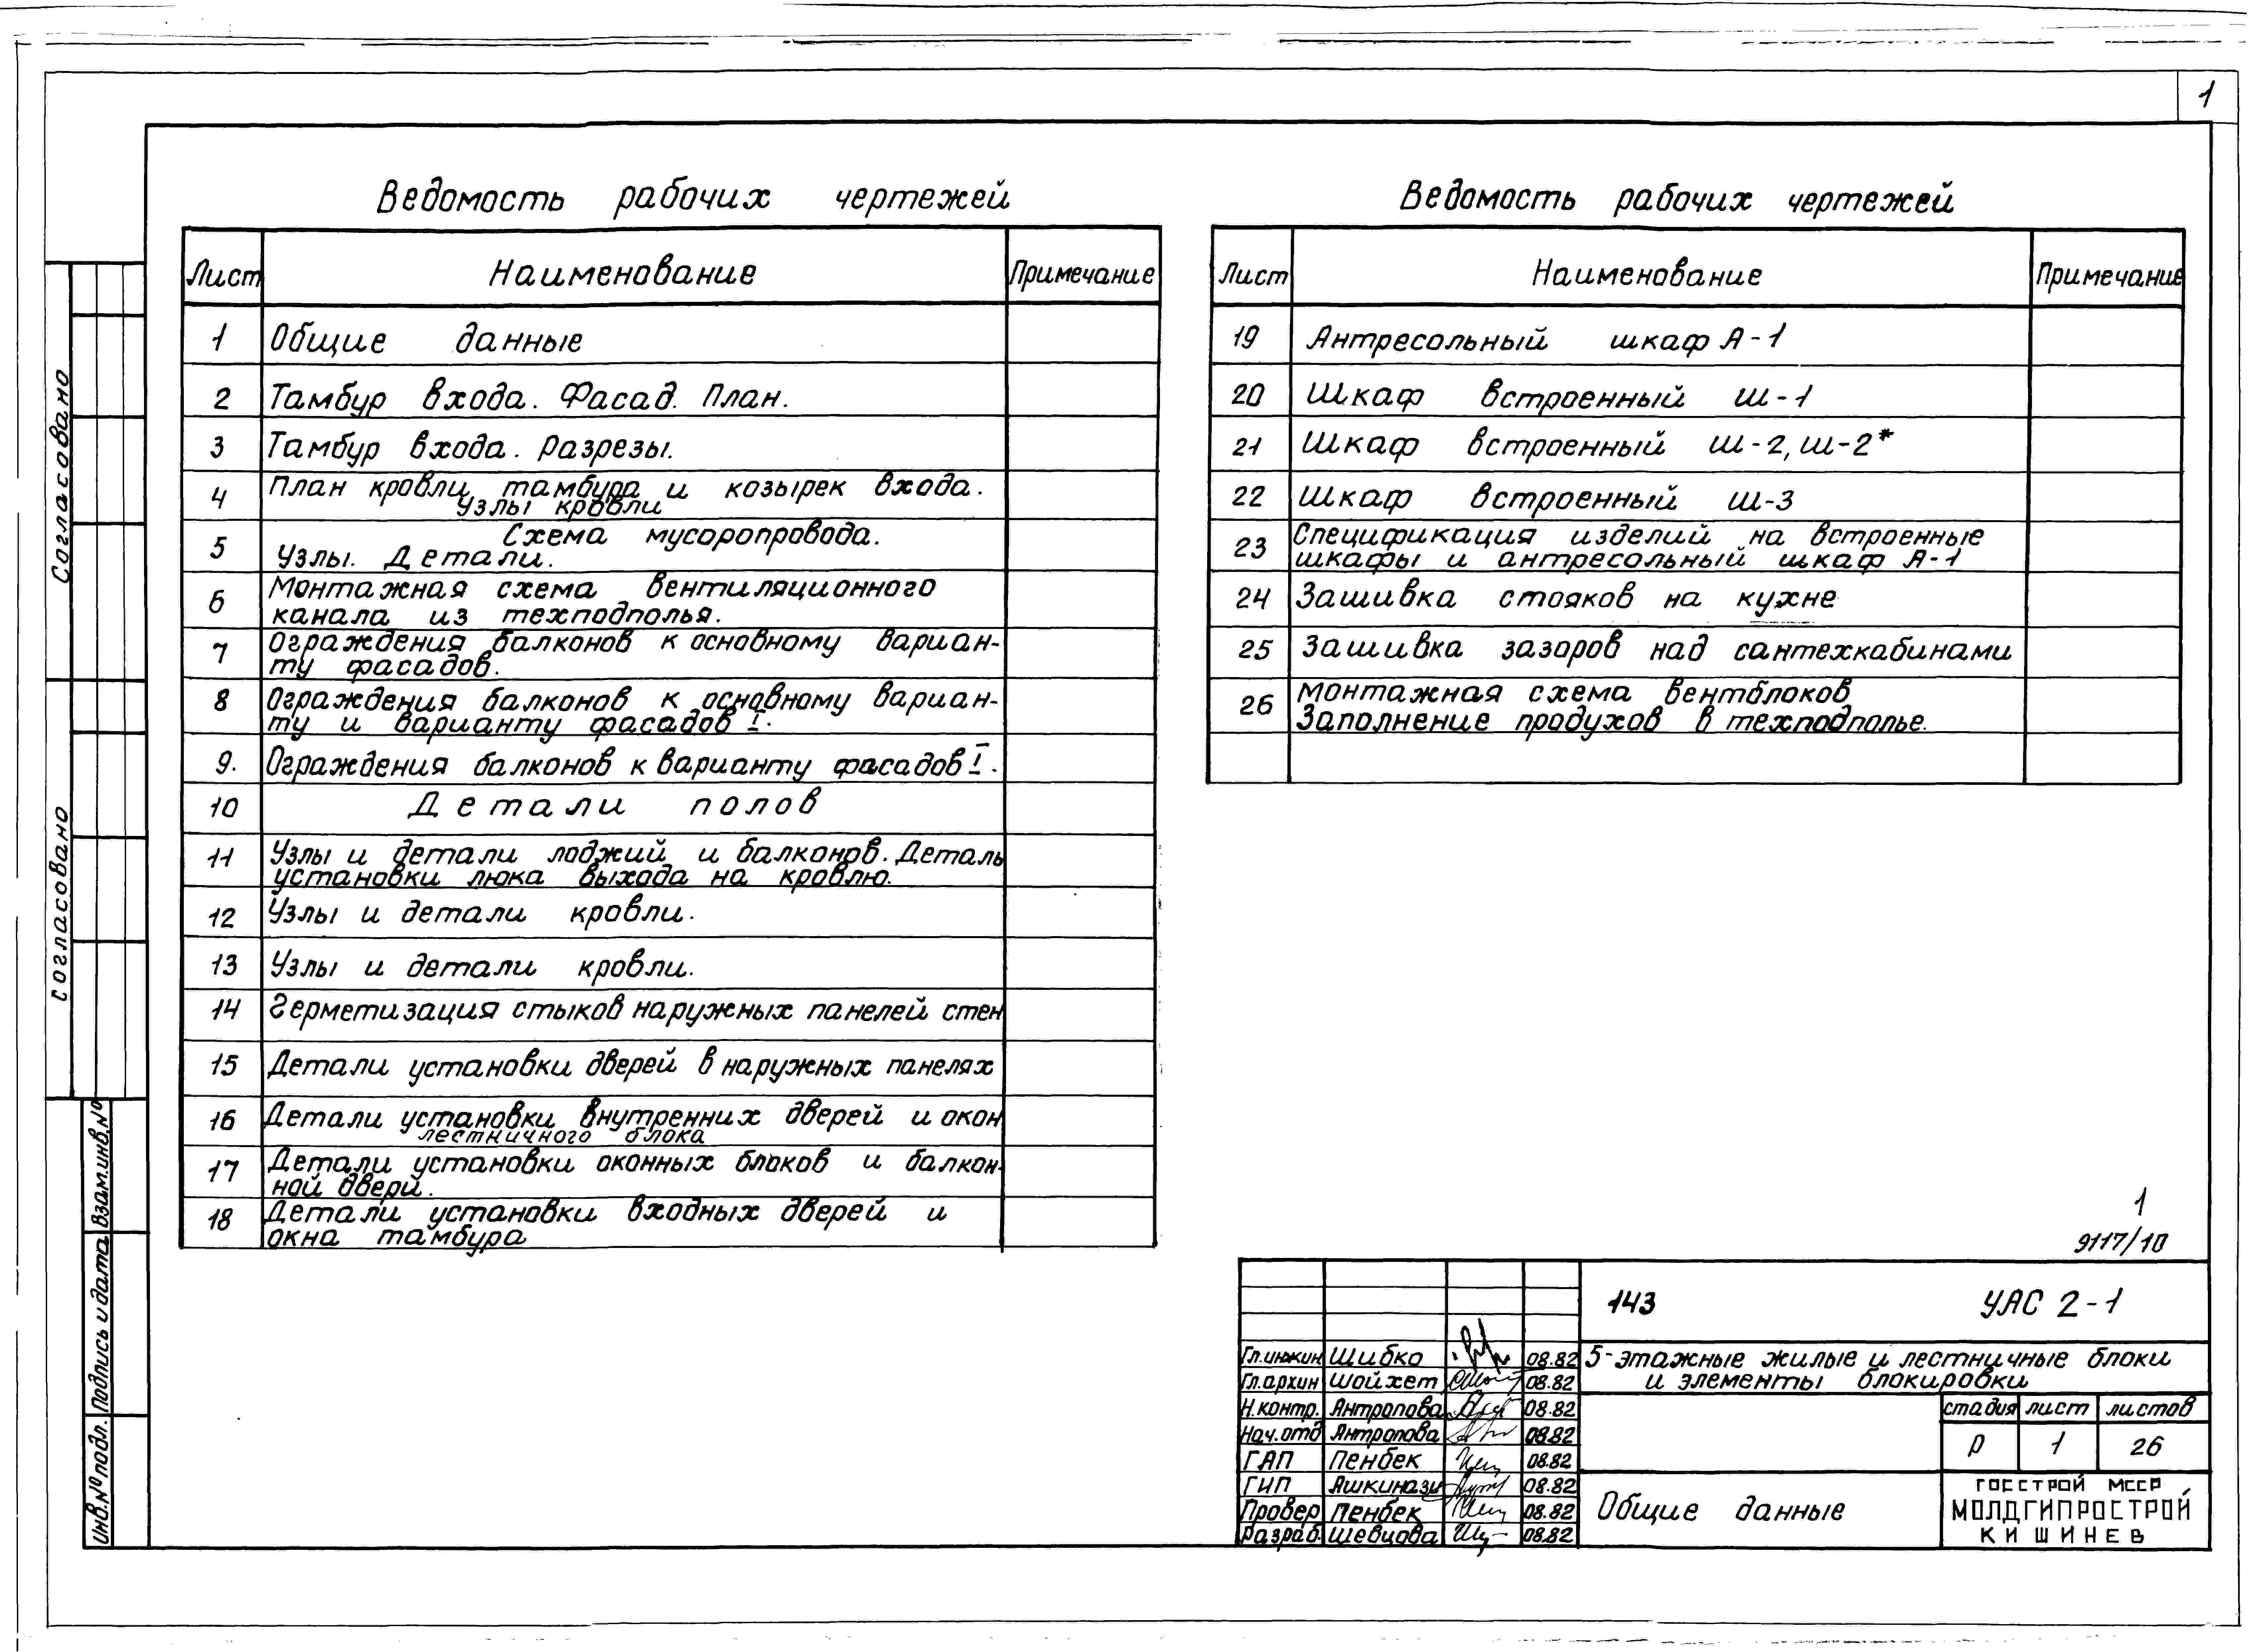 1
Ведомость рабочих чертежей
Лист Наименование Примечание
1 Общие данные
2 Тамбур входа. Фасад. План.
3 Тамбур входа. Разрезы.
4 План кровли тамбура и козырек входа.
Узлы кровли
5 Схема мусоропровода.
Узлы. Детали.
6 Монтажная схема вентиляционного
канала из техподполья.
7 Ограждения балконов к основному вариан-
ту фасадов.
8 Ограждения балконов к основному вариан-
ту и варианту фасадов I.
9. Ограждения балконов к варианту фасадов I.
10 Детали полов
11 Узлы и детали лоджий и балконов. Деталь
установки люка выхода на кровлю.
12 Узлы и детали кровли.
13 Узлы и детали кровли.
14 Герметизация стыков наружных панелей стен
15 Детали установки дверей в наружных панелях
16 Детали установки внутренних дверей и окон
лестничного блока
17 Детали установки оконных блоков и балкон-
ной двери.
18 Детали установки входных дверей и
окна тамбура
Ведомость рабочих чертежей
Лист Наименование Примечание
19 Антресольный шкаф А-1
20 Шкаф встроенный Ш-1
21 Шкаф встроенный Ш-2, Ш-2*
22 Шкаф встроенный Ш-3
23 Спецификация изделий на встроенные
шкафы и антресольный шкаф А-1
24 Зашивка стояков на кухне
25 Зашивка зазоров над сантехкабинами
26 Монтажная схема вентблоков
Заполнение продухов в техподполье.
Согласовано
Согласовано
Взам.инв.№
Подпись и дата
Инв.№ подл.
1
9117/10
143 УАС 2-1
5-этажные жилые и лестничные блоки
и элементы блокировки
Гл.инжин Шибко 08.82
Гл.архин Шойхет 08.82
Н.контр. Антропова 08.82
Нач.отд Антропова 08.82
ГАП Пенбек 08.82
ГИП Ашкинази 08.82
Провер Пенбек 08.82
Разраб. Шевцова 08.82
стадия лист листов
Р 1 26
Общие данные
ГОССТРОЙ МССР
МОЛДГИПРОСТРОЙ
КИШИНЕВ